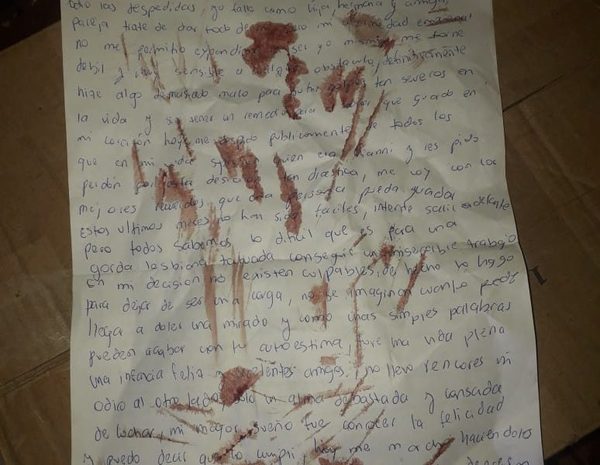 las despedidas yo falle como hija hermana y amiga,
pareja trate de dar todo de mi enfermedad emocional
no me permitio expandirme ser yo misma me torne
debil y muy sensible a obstante, definitivamente
hize algo demasiado malo para tan severos en
la vida y sin tener un remedio que guardo en
mi corazón hoy me despido publicamente de todos los
que en mi vida quien era y les pido
perdón por esta desicion tan drastica, me voy con los
mejores recuerdos, que una persona pueda guardar
estos ultimos meses no han sido faciles, intente salir adelante
pero todos sabemos lo dificil que es para una
gorda lesbiana tatuada conseguir un miserable trabajo
en mi decision no existen culpables, de hecho lo hago
para dejar de ser una carga, no se imaginan cuanto puede
llegar a doler una mirada y como unas simples palabras
pueden acabar con tu autoestima, tuve una vida plena
una infancia feliz y excelentes amigos, no llevo rencores ni
odio al otro lado, solo un alma debastada y cansada
de luchar, mi mayor sueño fue conocer la felicidad
y puedo decir que lo cumpli, hoy me marcho haciendolo